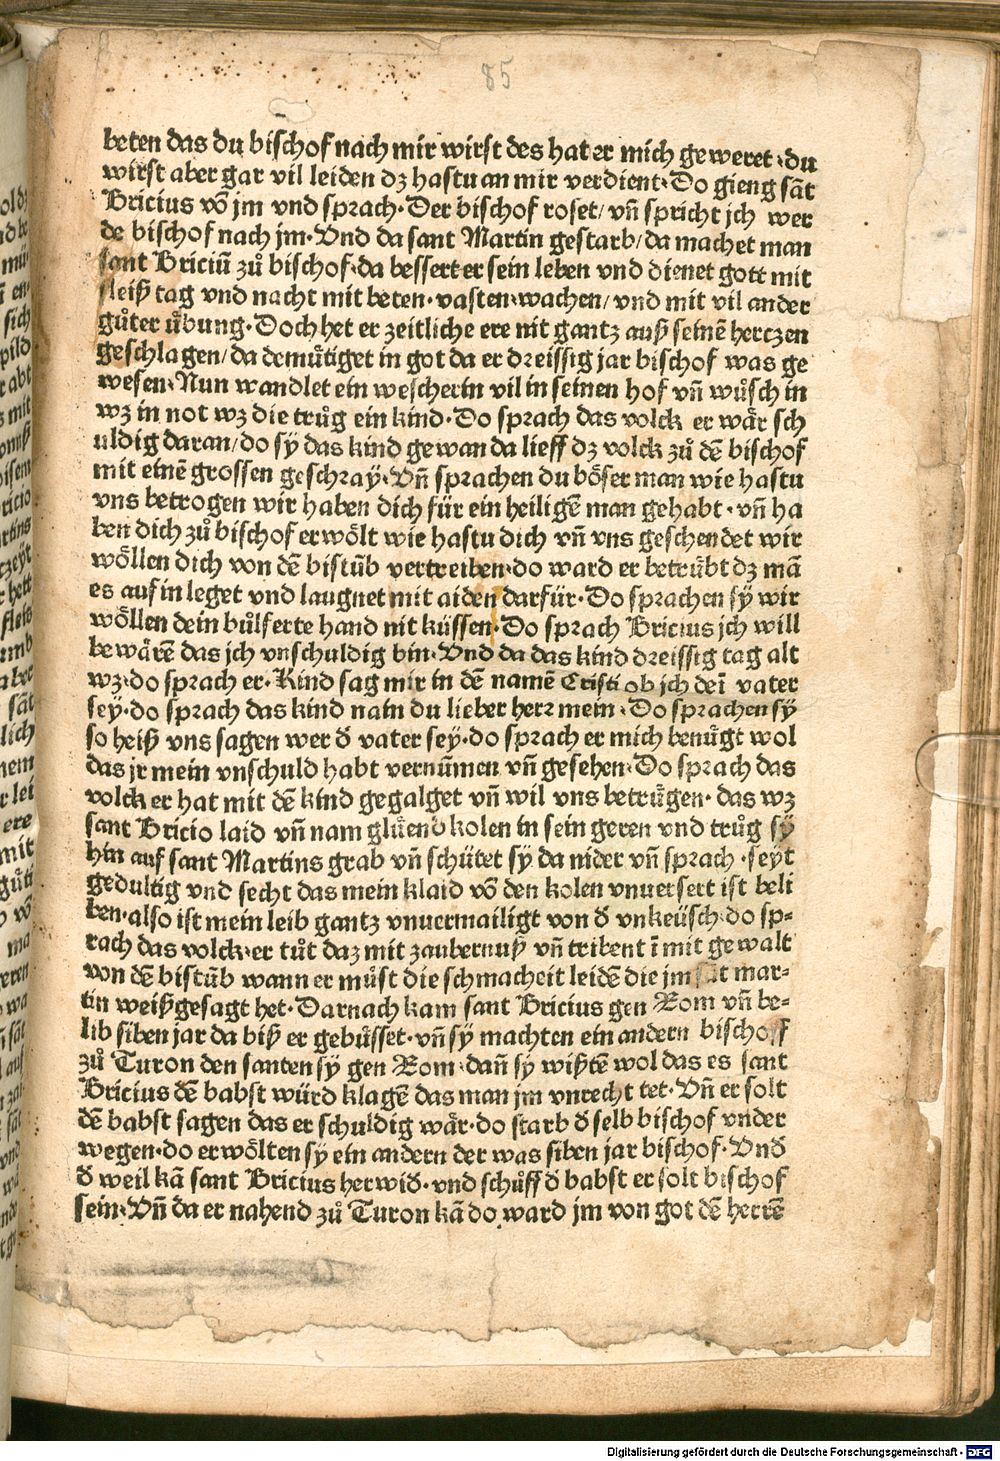 85
beten das du bischof nach mir wirst des hat er mich geweret · du
wirst aber gar vil leiden dz hastu an mir verdient · Do gieng sāt
Bricius vō jm vnd sprach · Der bischof roset / vn̄ spricht jch wer
de bischof nach jm · Vnd da sant Martin gestarb / da machet man
sant Briciū zů bischof · da bessert er sein leben vnd dienet gott mit
fleiß tag vnd nacht mit beten · vasten · wachen / vnd mit vil ander
gůter u̇bung · Doch het er zeitliche ere nit gantz auß seinē herczen
geschlagen / da demütiget in got da er dreissig jar bischof was ge
wesen · Nun wandlet ein wescherin vil in seinen hof vn̄ wůsch in
wz in not wz die trůg ein kind · Do sprach das volck er wär sch
uldig daran / do sÿ das kind gewan da lieff dz volck zů dē bischof
mit einē grossen geschray · Vn̄ sprachen du böser man wie hastu
vns betrogen wir haben dich für ein heiligē man gehabt · vn̄ ha
ben dich zů bischof erwölt wie hastu dich vn̄ vns geschendet wir
wöllen dich von dē bistūb vertreiben · do ward er betrübt dz mā
es auf in leget vnd laugnet mit aiden darfür · Do sprachen sÿ wir
wöllen dein bůlferte hand nit küssen · Do sprach Bricius jch will
bewärē das jch vnschuldig bin · Vnd da das kind dreissig tag alt
wz · do sprach er · Kind sag mir in dē namē Cristi ob jch deī vater
sey · do sprach das kind nain du lieber herr mein · Do sprachen sÿ
so heiß vns sagen wer d̄ vater sey · do sprach er mich benügt wol
das jr mein vnschuld habt vernūmen vn̄ gesehen · Do sprach das
volck er hat mit dē kind gegalget vn̄ wil vns betrügen · das wz
sant Bricio laid vn̄ nam glüend kolen in sein geren vnd trůg sÿ
hin auf sant Martins grab vn̄ schütet sÿ da nider vn̄ sprach · seyt
gedultig vnd secht das mein klaid vō den kolen vnuersert ist beli
ben · also ist mein leib gantz vnuermailigt von d̄ vnkeüsch · do sp-
rach das volck · er tůt daz mit zaubernuß vn̄ tribent ī mit gewalt
von dē bistūb wann er můst die schmacheit leidē die jm sāt mar-
tin weißgesagt het · Darnach kam sant Bricius gen Rom vn̄ be-
lib siben jar da biß er gebůsset · vn̄ sÿ machten ein andern bischoff
zů Turon den santen sÿ gen Rom · dan̄ sÿ wißtē wol das es sant
Bricius dē babst würd klagē das man jm vnrecht tet · Vn̄ er solt
dē babst sagen das er schuldig wär · do starb d̄ selb bischof vnder
wegen · do erwölten sÿ ein andern der was siben jar bischof · Vnd̄
d̄ weil kā sant Bricius herwid̄ · vnd schůff d̄ babst er solt bischof
sein · Vn̄ da er nahend zů Turon kā do ward jm von got dē herrē
Digitalisierung gefördert durch die Deutsche Forschungsgemeinschaft - DFG